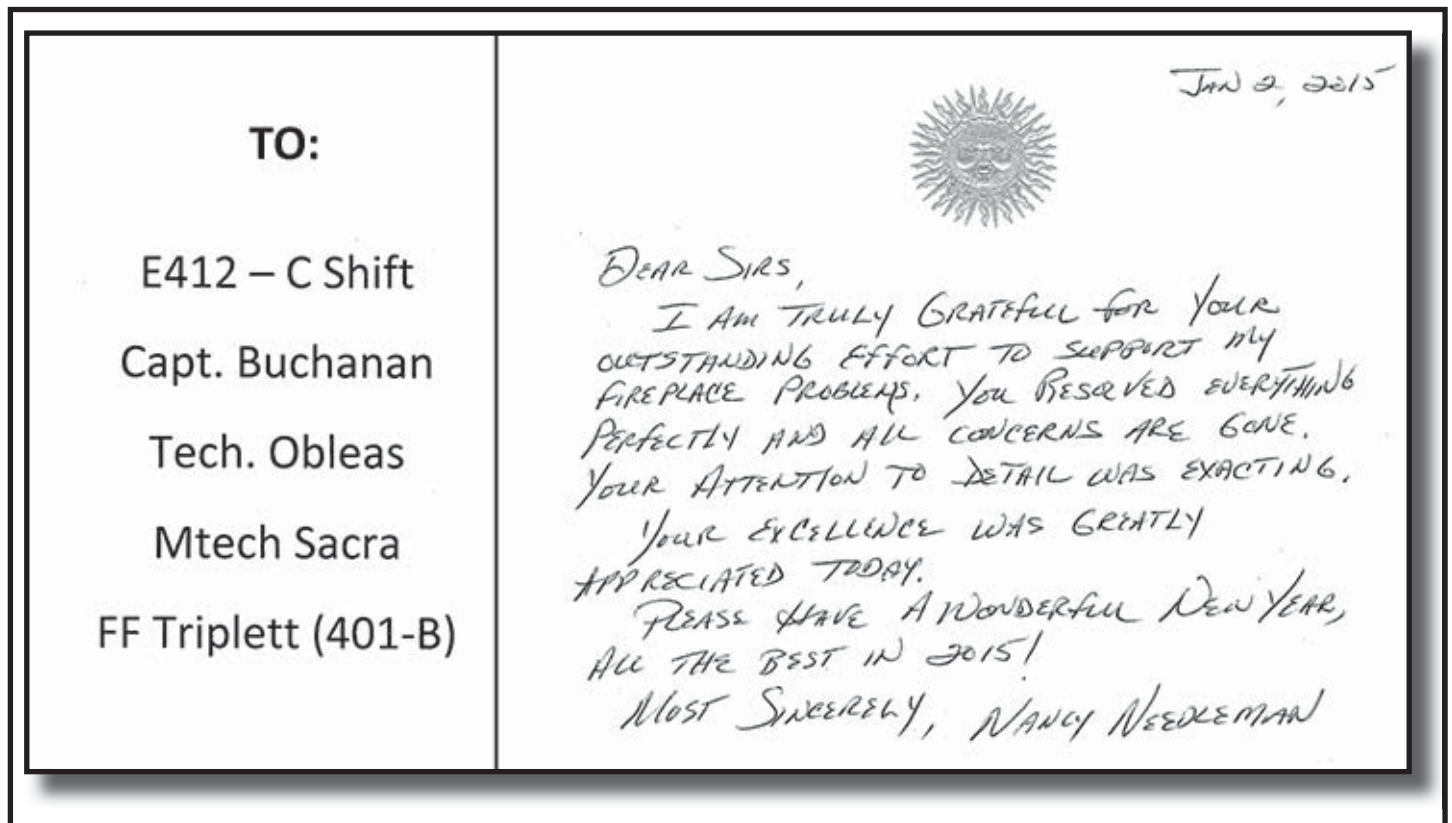 TO:
E412 – C Shift
Capt. Buchanan
Tech. Obleas
Mtech Sacra
FF Triplett (401-B)
JAN 2, 2015
DEAR SIRS,
I AM TRULY GRATEFUL FOR YOUR
OUTSTANDING EFFORT TO SUPPORT MY
FIREPLACE PROBLEMS. YOU RESOLVED EVERYTHING
PERFECTLY AND ALL CONCERNS ARE GONE.
YOUR ATTENTION TO DETAIL WAS EXACTING.
YOUR EXCELLENCE WAS GREATLY
APPRECIATED TODAY.
PLEASE HAVE A WONDERFUL NEW YEAR,
ALL THE BEST IN 2015!
MOST SINCERELY, NANCY NEEDLEMAN